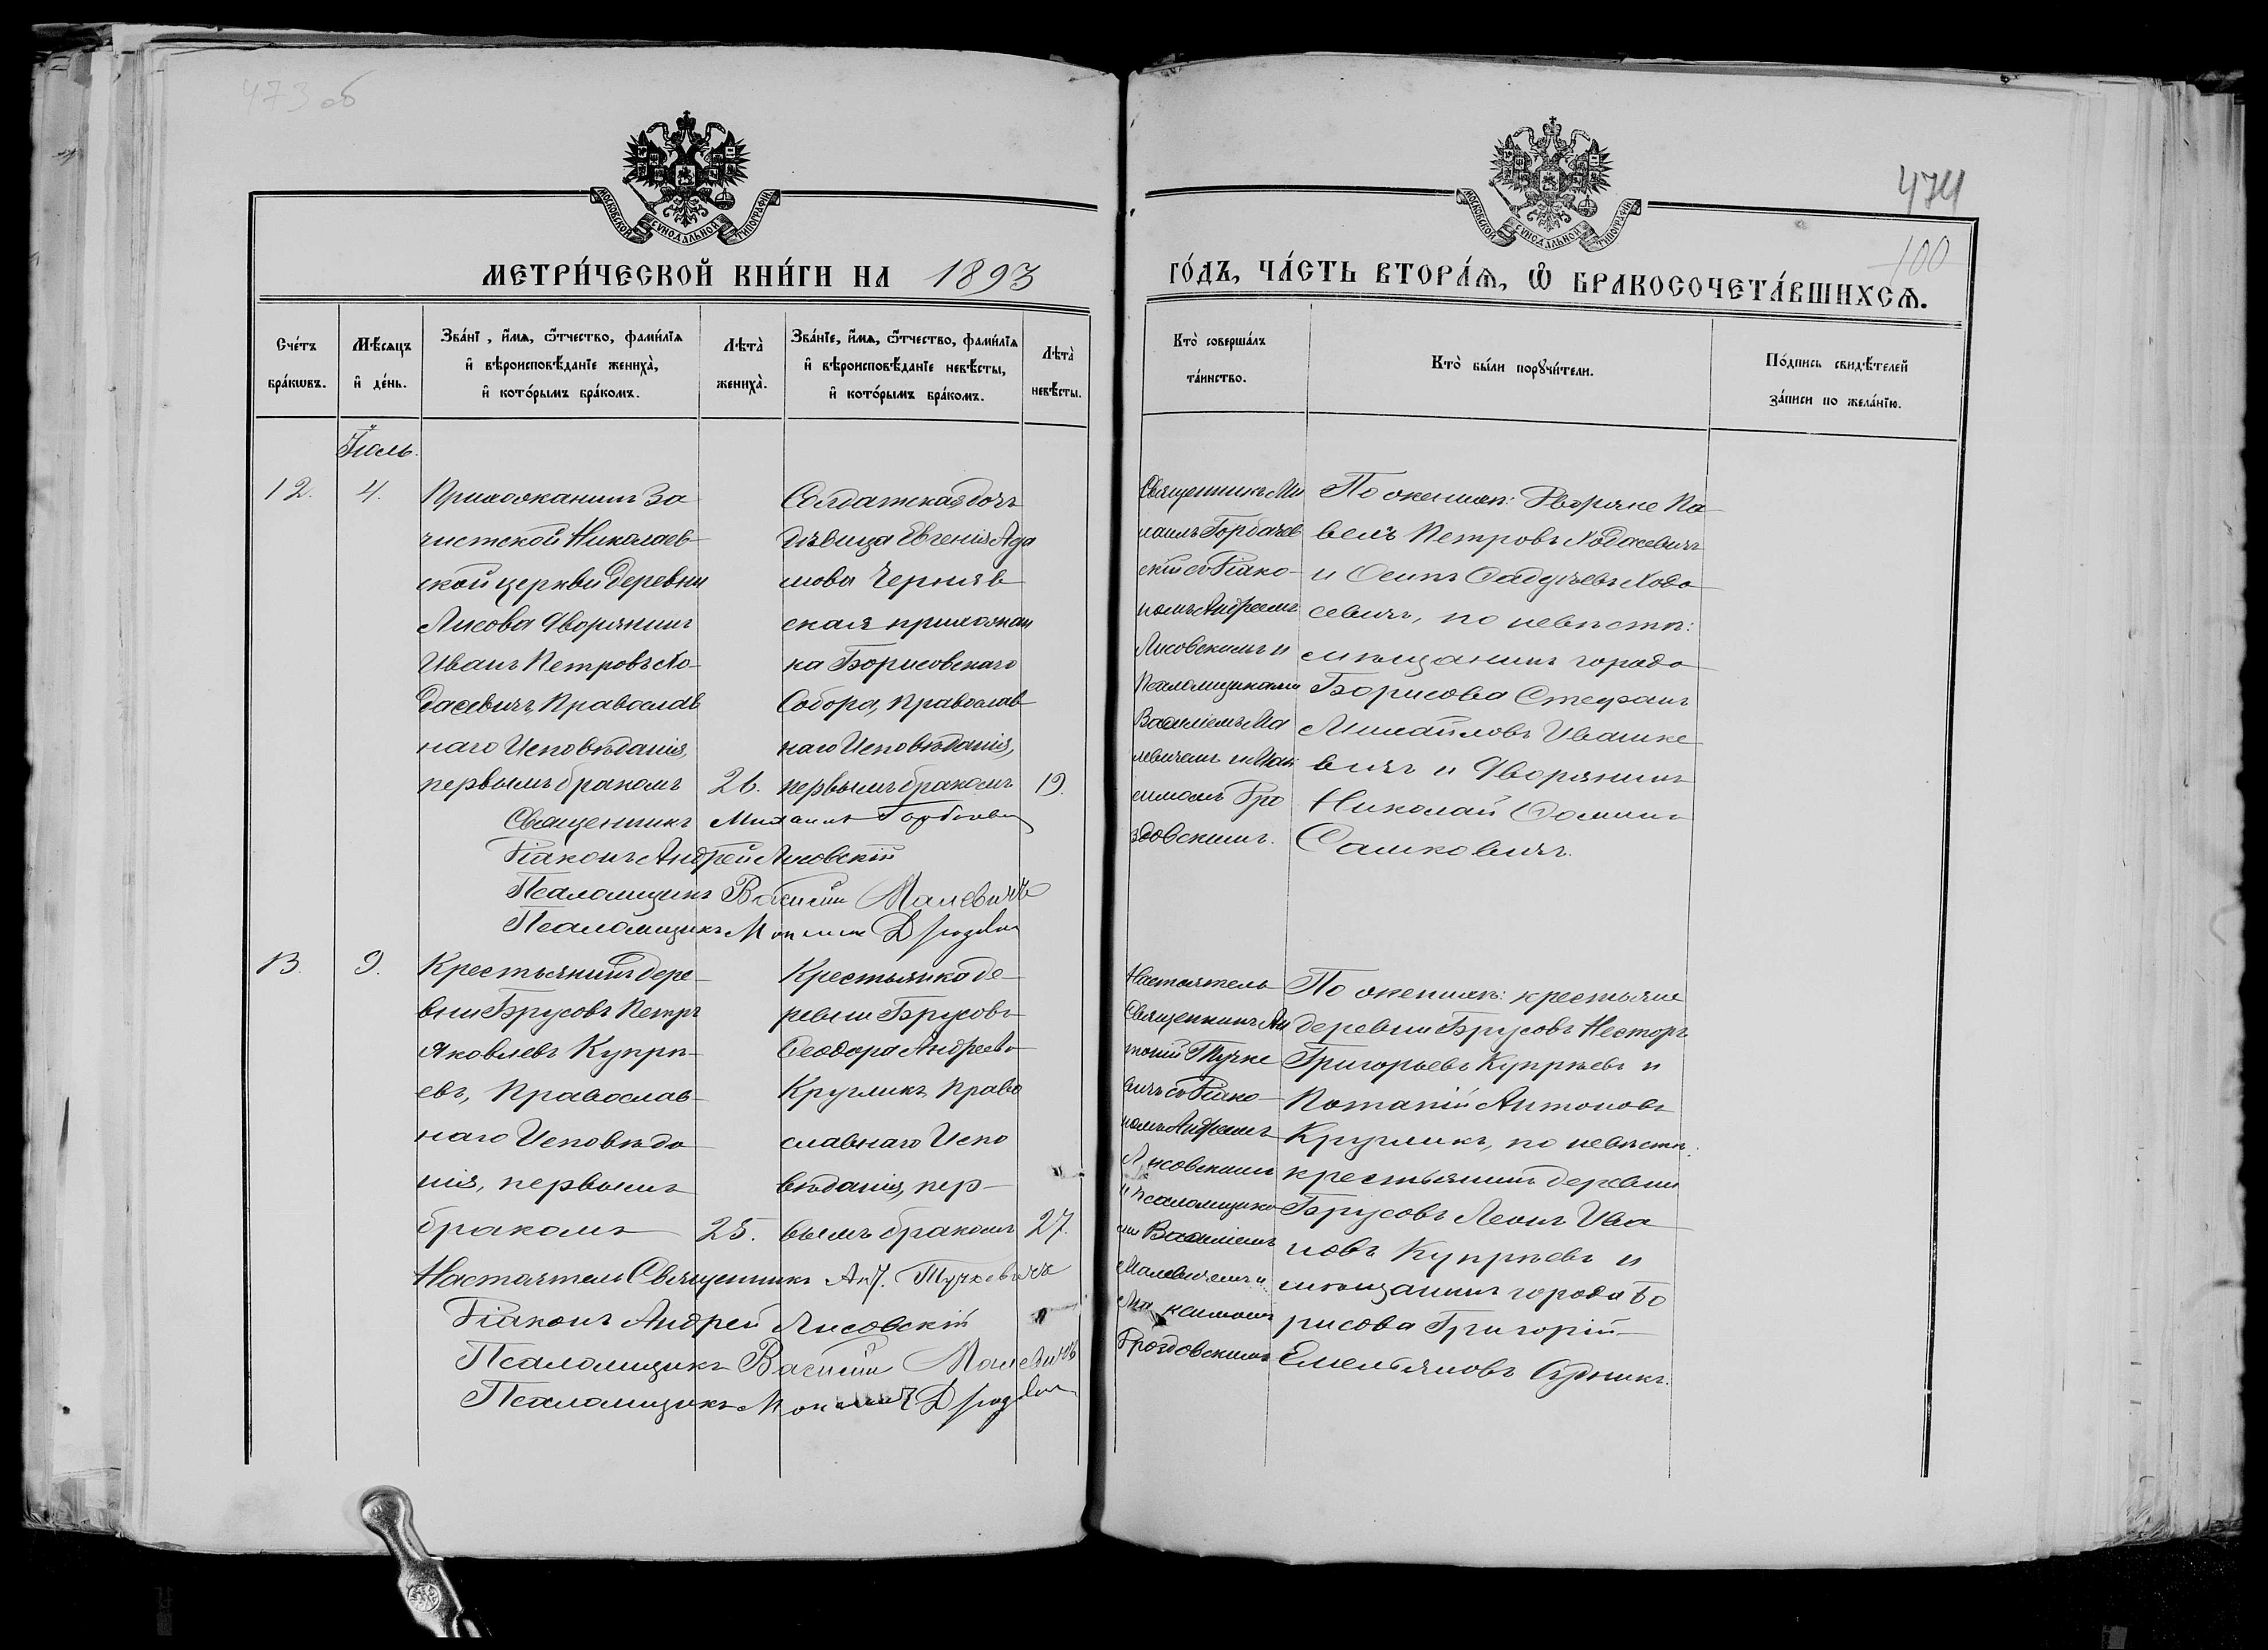 473 об
МОСКОВСКОЙ СѴНОДАЛЬНОЙ ТИПОГРАФІИ
МЕТРИ́ЧЕСКОЙ КНИ́ГИ НА 1893
Сче́тъ бра́кѡвъ.
Мѣ́сяцъ и҆ де́нь.
Зва́нї , и҆́мѧ, ѻ҆́тчество, фами́лїѧ
и҆ вѣроисповѣ́данїе жениха̀,
и҆ кото́рымъ бра́комъ.
Лѣта̀ жениха̀.
Зва́нїе, и҆́мѧ, ѻ҆́тчество, фами́лїѧ
и҆ вѣроисповѣ́данїе невѣ́сты,
и҆ кото́рымъ бра́комъ.
Лѣта̀ невѣ́сты.
Іюль.
12.
4.
Прихожанинъ За
чистской Николаев
ской церкви деревни
Лисова дворянинъ
Иванъ Петровъ Хо
дасевичъ, Православ
наго Исповѣданія,
первымъ бракомъ
26.
Солдатская дочь
дѣвица Евгенія Ада
мова Черняв
ская прихожан
ка Борисовскаго
Собора, православ
наго Исповѣданія,
первымъ бракомъ
19.
Священникъ Михаилъ
Діаконъ Андрей Лисовскій
Псаломщикъ Василій Малевичъ
Псаломщикъ
13.
9.
Крестьянинъ дере
вни Брусовъ Петръ
Яковлевъ Купрѣ
евъ, Православ
наго Исповѣда
нія, первымъ
бракомъ
25.
Крестьянка де
ревни Брусовъ
Ѳеодора Андреева
Кругликъ, право
славнаго Испо
вѣданія, пер
вымъ бракомъ
27.
Настоятель Священникъ Ант. Тучкевичъ
Діаконъ Андрей Лисовскій
Псаломщикъ Василій Малевичъ
Псаломщикъ
474
100
МОСКОВСКОЙ СѴНОДАЛЬНОЙ ТИПОГРАФІИ
ГО́ДЪ, ЧА́СТЬ ВТОРА́Ѧ, Ѡ҆ БРАКОСОЧЕТА́ВШИХСѦ.
Кто̀ соверша́лъ та́инство.
Кто̀ бы́ли порꙋчи́тели.
По́дпись свидѣ́телей за́писи по жела́нїю.
Священникъ Ми
хаилъ Горбачев
скій съ Діако
номъ Андреемъ
Лисовскимъ и
Псаломщиками
Василіемъ Ма
левичемъ и Мак
симомъ Дро
здовскимъ.
По женихѣ: Дворяне Па
велъ Петровъ Ходасевичъ
и Осипъ Ѳадѣевъ Ходо
севичъ, по невѣстѣ:
мѣщанинъ города
Борисова Стефанъ
Михайловъ Ивашке
вичъ и дворянинъ
Николай Ѳоминъ
Сашковичъ.
Настоятель
Священникъ Ан
тоній Тучке
вичъ съ Діако
номъ Андреемъ
Лисовскимъ
и псаломщика
ми Василіемъ
Малевичемъ и
Максимомъ
Дроздовскимъ
По женихѣ: крестьяне
деревни Брусовъ Несторъ
Григорьевъ Купрѣевъ и
Потапій Антоновъ
Кругликъ, по невѣстѣ:
крестьянинъ деревни
Брусовъ Леонъ Ива
новъ Купрѣевъ и
мѣщанинъ города Бо
рисова Григорій
Емельяновъ